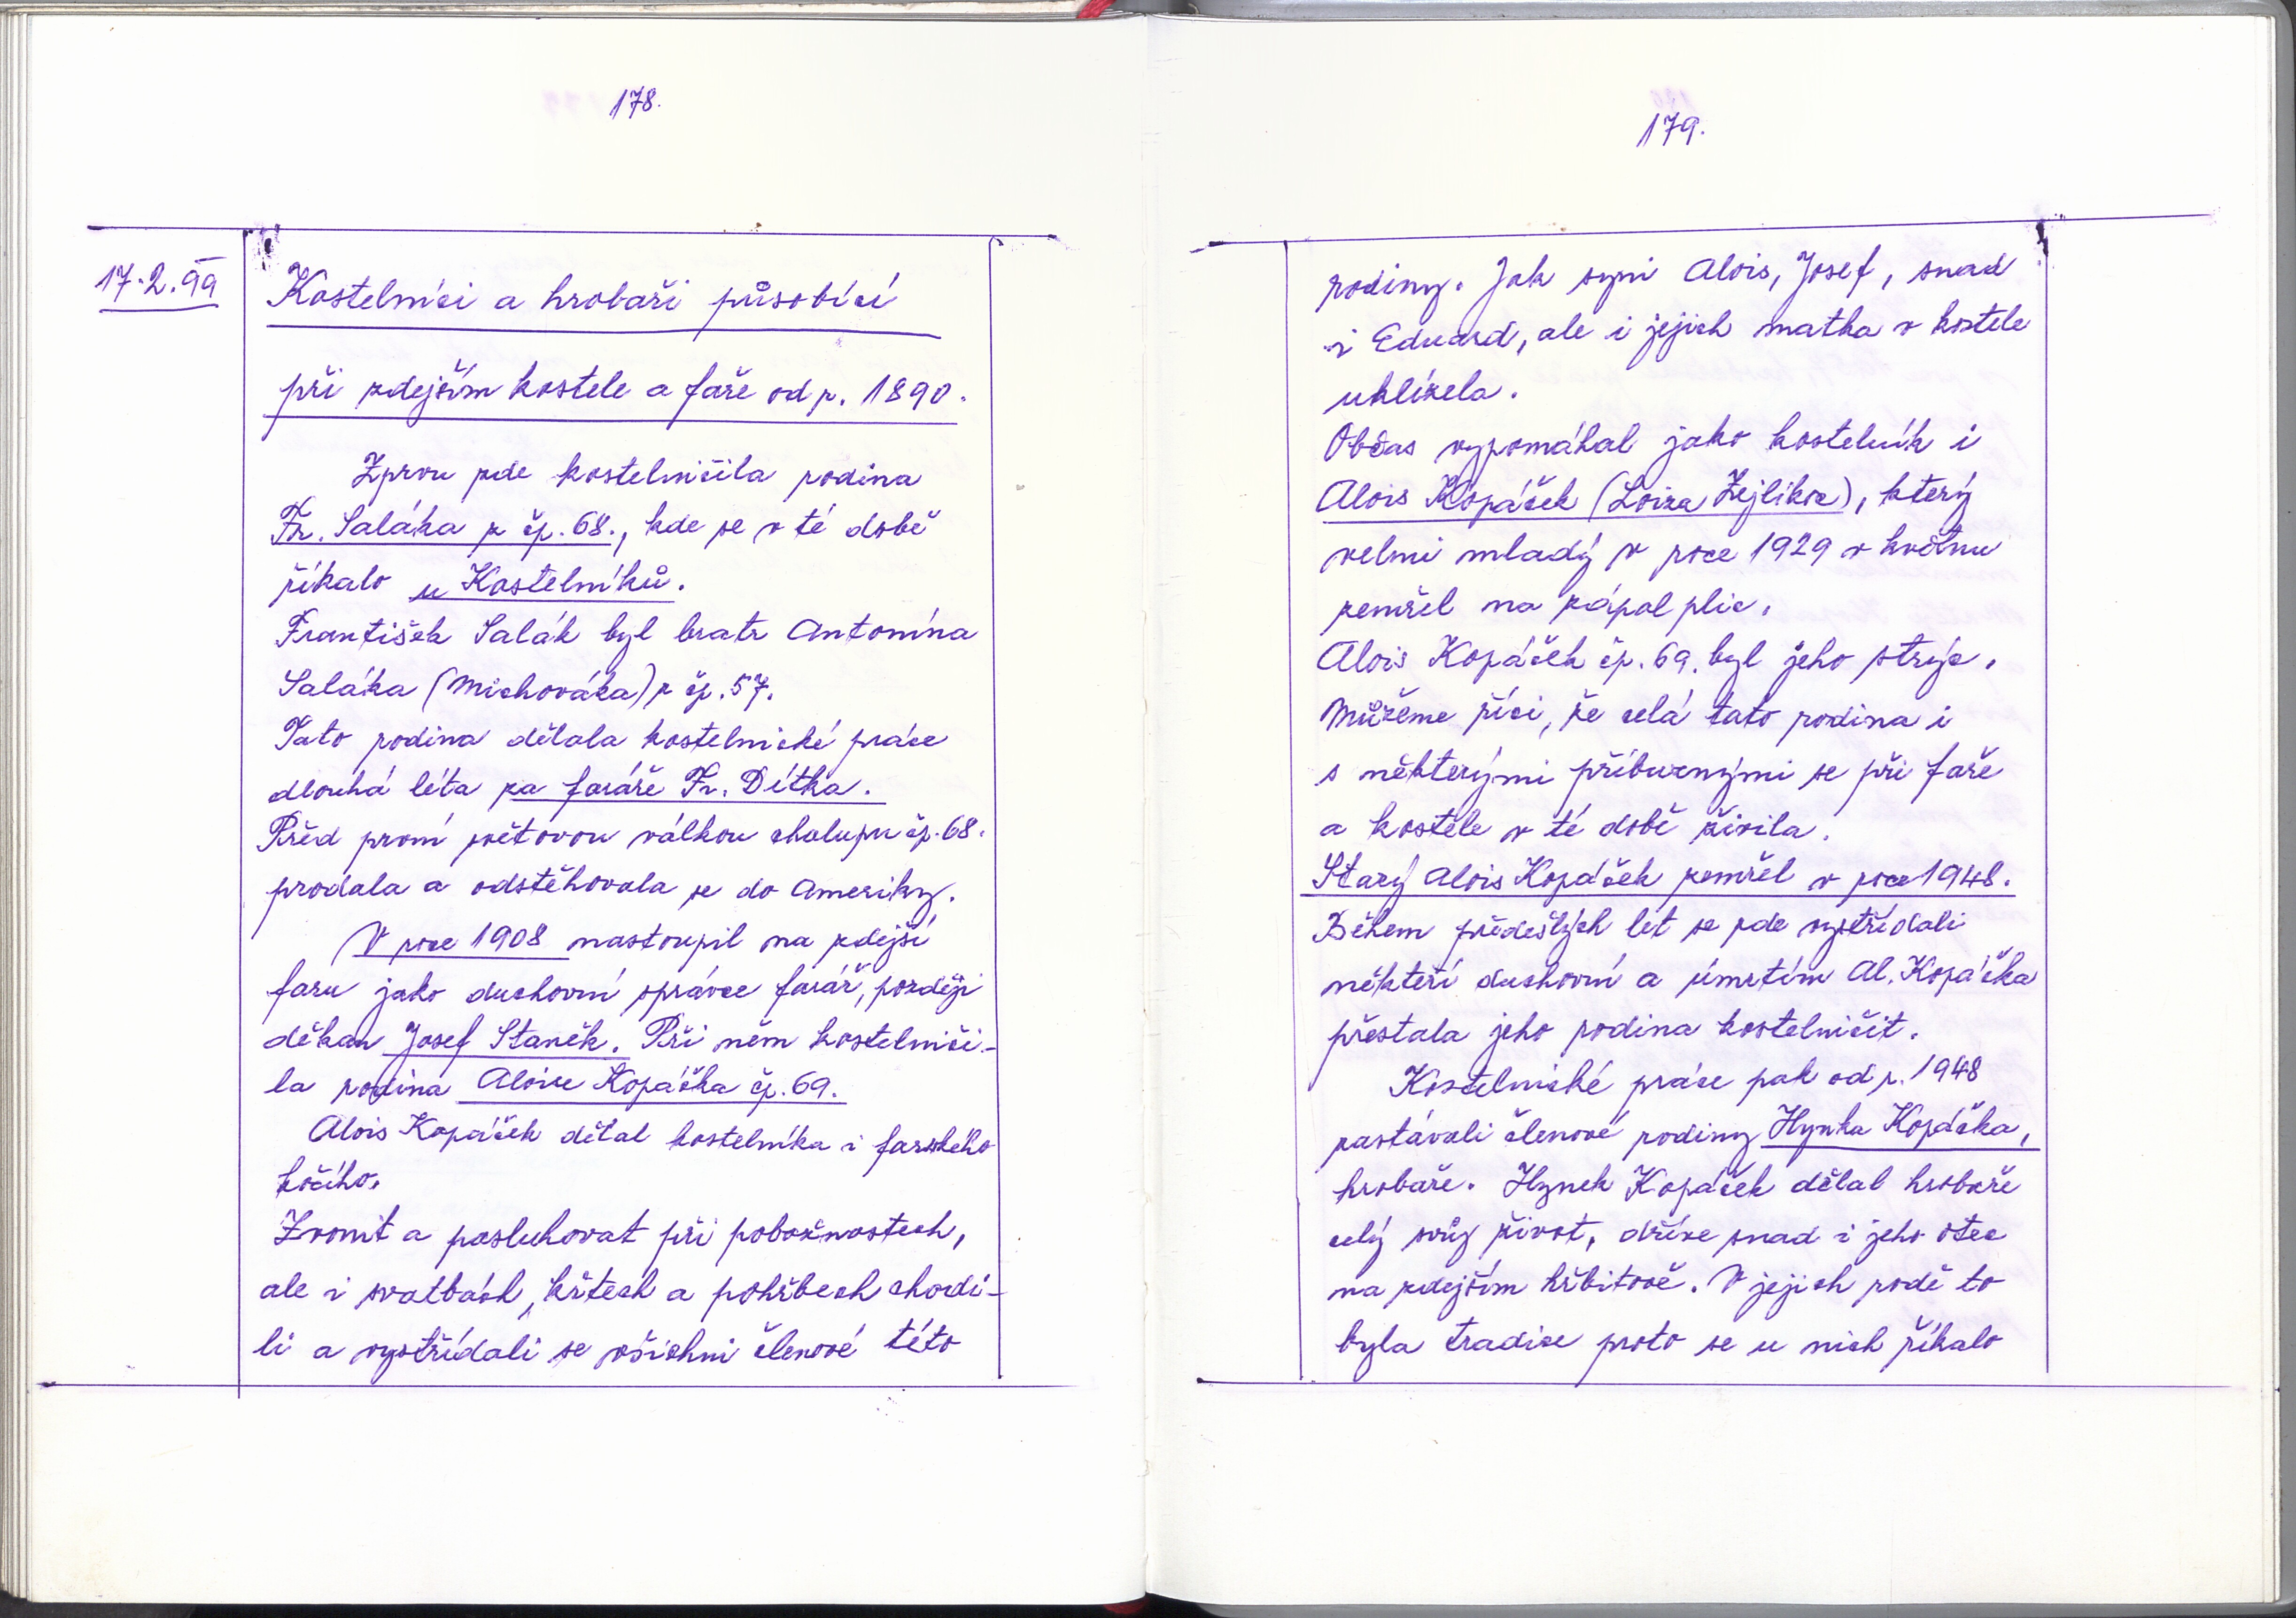 178.
17.2.99
Kostelníci a hrobaři působící
při zdejším kostele a faře od r. 1890.
Zprvu zde kostelničila rodina
Fr. Saláka z čp. 68., kde se v té době
říkalo u Kostelníků.
František Salák byl bratr Antonína
Saláka (Michováka) z čp. 57.
Tato rodina dělala kostelnické práce
dlouhá léta za faráře Fr. Dítka.
Před první světovou válkou chalupu čp. 68.
prodala a odstěhovala se do Ameriky.
V roce 1908 nastoupil na zdejší
faru jako duchovní správce farář, později
děkan Josef Staněk. Při něm kostelniči-
la rodina Aloise Kopáčka čp. 69.
Alois Kopáček dělal kostelníka i farského
kočího.
Zvonit a posluhovat při pobožnostech,
ale i svatbách, křtech a pohřbech chodi-
li a vystřídali se všichni členové této
179.
rodiny. Jak syni Alois, Josef, snad
i Eduard, ale i jejich matka v kostele
uklízela.
Občas vypomáhal jako kostelník i
Alois Kopáček (Loiza Zejlikec), který
velmi mladý v roce 1929 v květnu
zemřel na zápal plic.
Alois Kopáček čp. 69. byl jeho strýc.
Můžeme říci, že celá tato rodina i
s některými příbuznými se při faře
a kostele v té době živila.
Starý Alois Kopáček zemřel v roce 1948.
Během předešlých let se zde vystřídali
někteří duchovní a úmrtím Al. Kopáčka
přestala jeho rodina kostelničit.
Kostelnické práce pak od r. 1948
zastávali členové rodiny Hynka Kopáčka,
hrobaře. Hynek Kopáček dělal hrobaře
celý svůj život, dříve snad i jeho otec
na zdejším hřbitově. V jejich rodě to
byla tradice proto se u nich říkalo